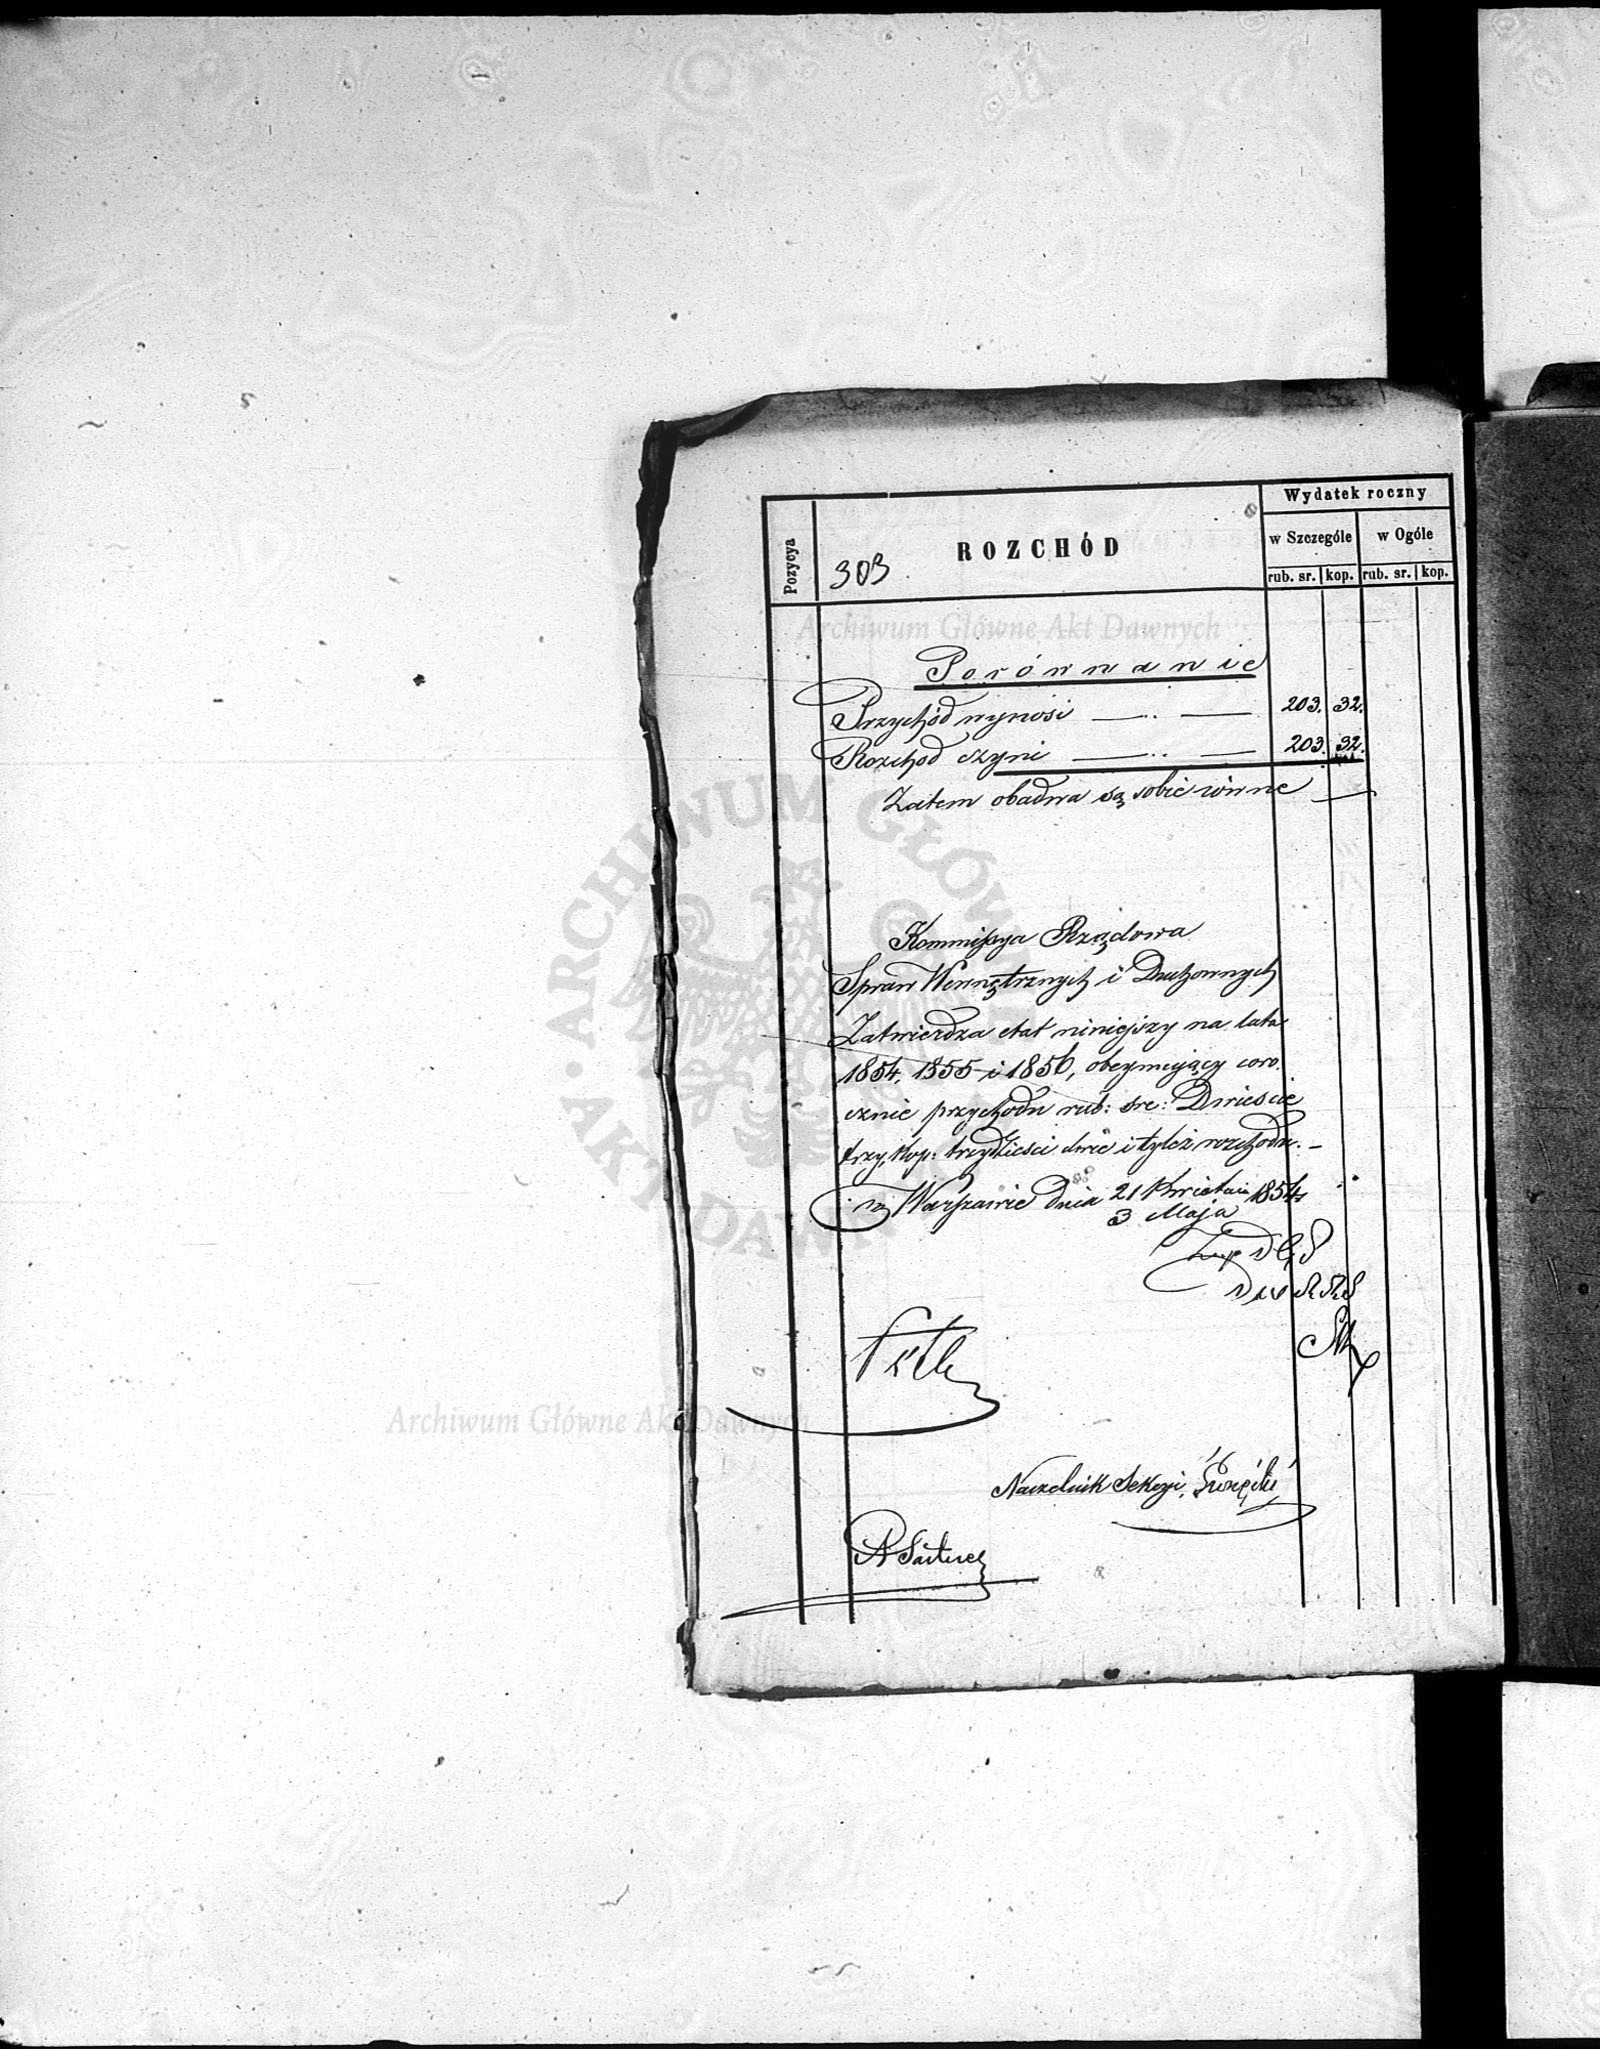 Wydatek roczny
Pozycya
303
ROZCHÓD
w Szczególe
w Ogóle
rub. sr. kop. rub. sr. kop.
Archiwum Główne Akt Dawnych
Porównanie
Przychód wynosi — .. — 203. 32.
Rozchód czyni — .. — 203. 32.
Zatem obadwa są sobie równe —
ARCHIWUM GŁÓWNE AKT DAWNYCH
Kommissya Rządowa
Spraw Wewnętrznych i Duchownych
Zatwierdza etat niniejszy na lata
1854, 1855 i 1856, obeymujący coro.
cznie przychodu rub: sre: Dwieście
trzy, kop: trzydzieści dwie i tyleż rozchodu. –
w Warszawie dnia 21 Kwietnia 1854
3 Maja
Archiwum Główne Akt Dawnych
Naczelnik Sekcyi